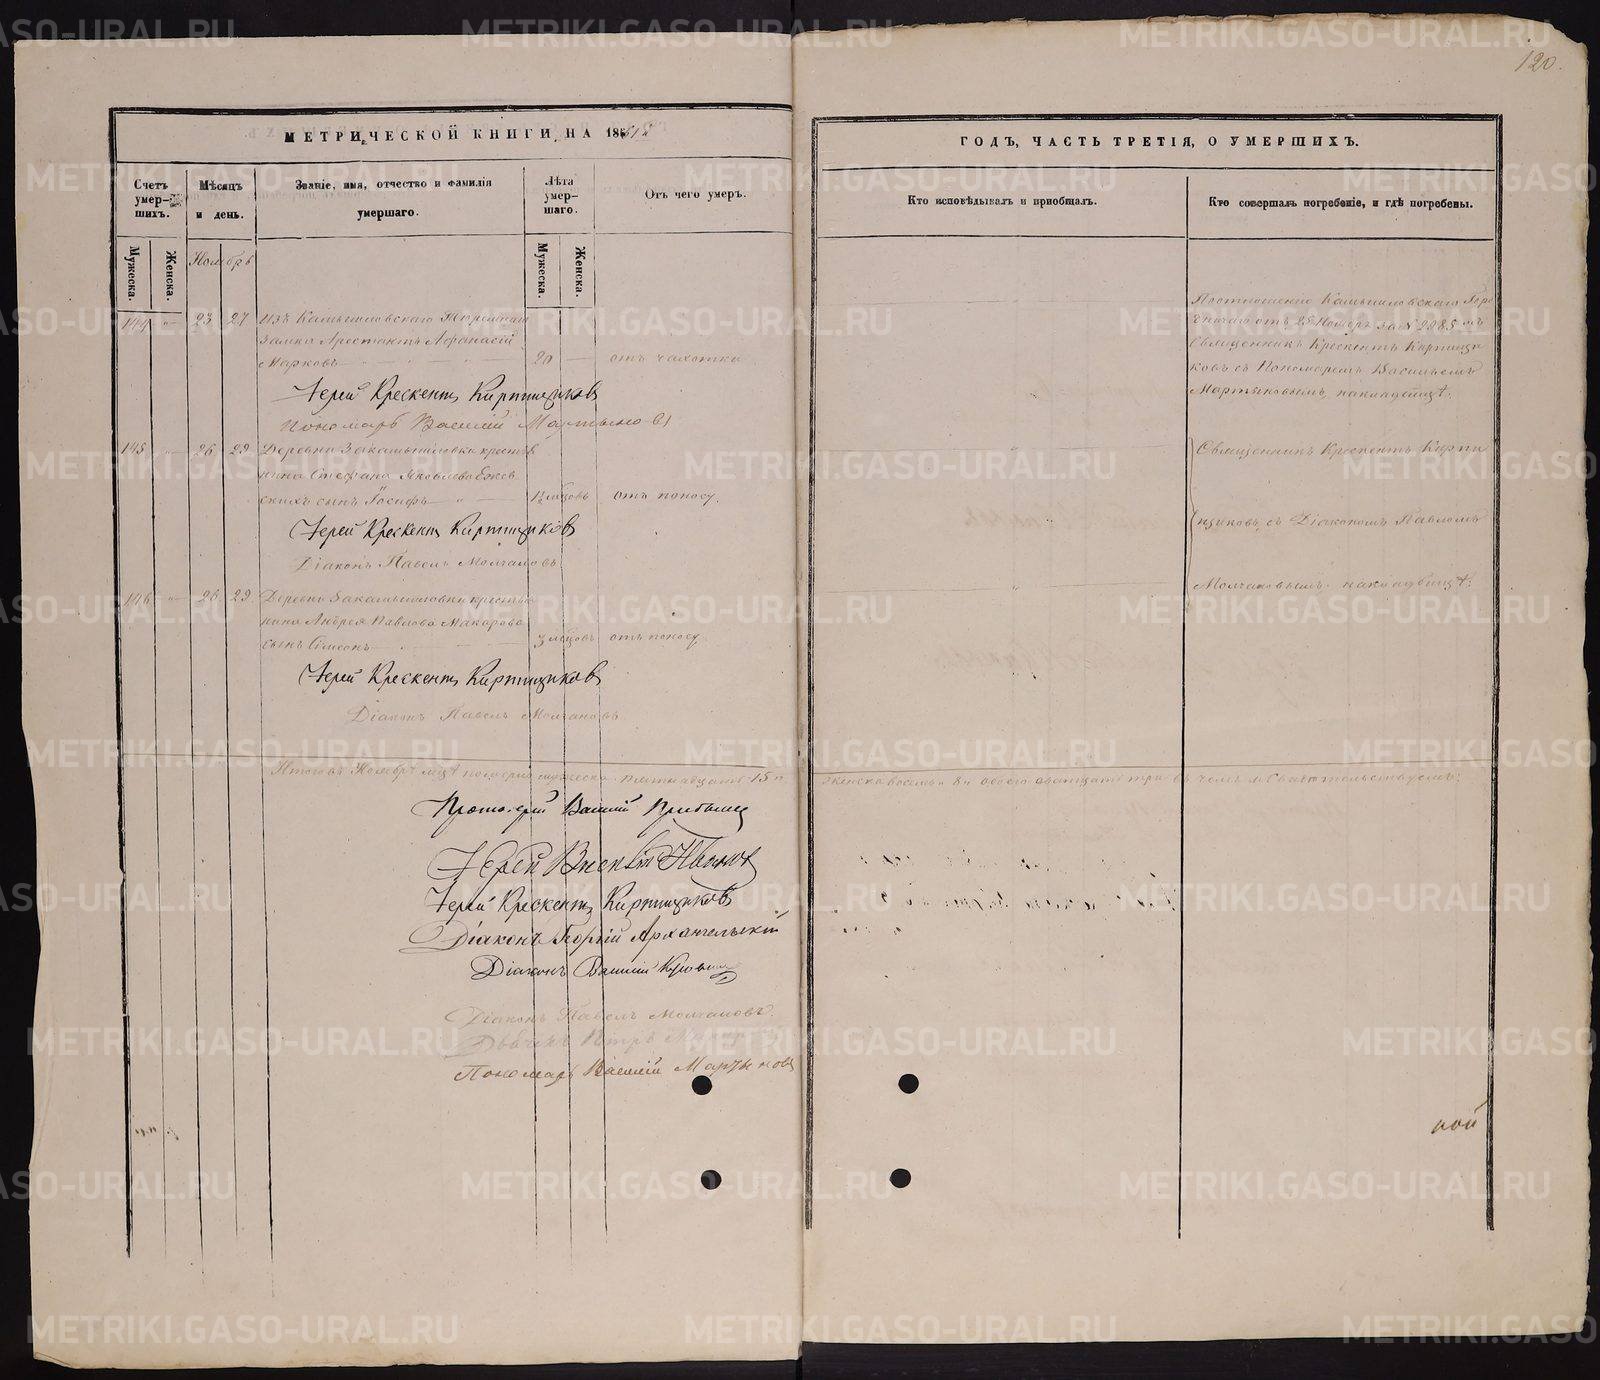 120.
МЕТРИЧЕСКОЙ КНИГИ НА 18
ГОДЪ, ЧАСТЬ ТРЕТІЯ, О УМЕРШИХЪ.
Счетъ умер-шихъ.
Мѣсяцъ и день.
Званіе, имя, отчество и фамилія умершаго.
Лѣта умер-шаго.
Отъ чего умеръ.
Кто исповѣдывалъ и пріобщалъ.
Кто совершалъ погребеніе, и гдѣ погребены.
Мужеска.
Женска.
Ноябрь
Мужеска.
Женска.
144 " 23 27 Изъ Камышловскаго Тюремнаго
Замка Арестантъ Афанасій
Марковъ 20 — отъ чахотки
Іерей Крескентъ Кирпищиковъ
Пономарь Василій Мартыновъ
По отношенію Камышловскаго Горо
за № 2085
Священникъ Крескентъ Кирпищи
ковъ съ Пономаремъ Васильемъ
Мартыновымъ, на кладбищѣ.
145 " 26 29 Деревни Закамышловки крестья
нина Стефана Яковлева
скихъ сынъ Іосифъ отъ поносу.
Іерей Крескентъ Кирпищиковъ
Діаконъ Павелъ Молчановъ
Священникъ Крескентъ Кирпи
щиковъ, съ Діакономъ Павломъ
Молчановымъ. на кладбищѣ.
146 " 26 29 Деревни Закамышловки крестья
нина Андрея Павлова Макарова
сынъ Симеонъ 3 мѣсцовъ отъ поносу.
Іерей Крескентъ Кирпищиковъ
Діаконъ Павелъ Молчановъ
Итого въ Ноябрѣ мцѣ померло мужеска пятнадцать 15 и
женска восемь 8 и обоего двадцать три въ чемъ и свидѣтельствуемъ:
Протоіерей Василій
Іерей
Іерей Крескентъ Кирпищиковъ
Діаконъ Георгій Архангельскій
Діаконъ Василій
Діаконъ Павелъ Молчановъ.
Петръ
Пономарь Василій Мартыновъ
ной
METRIKI.GASO-URAL.RU